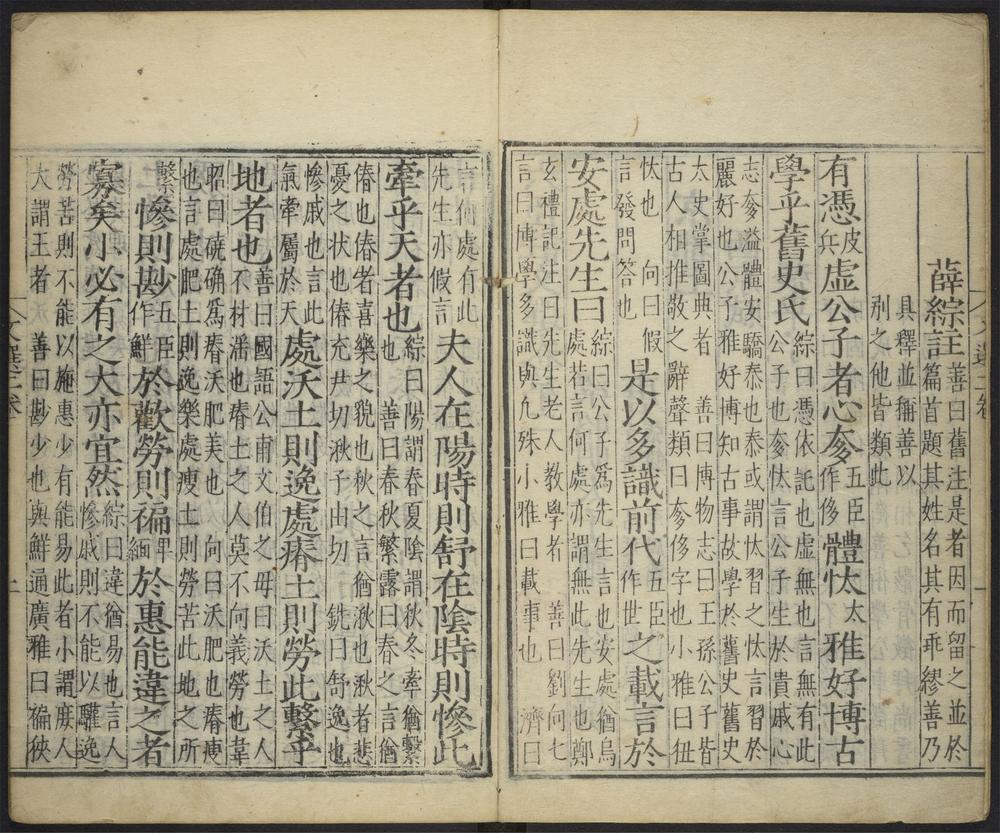 薛綜註善曰舊注是者因而留之並於篇首題其姓名其有乖繆善乃
具釋並稱善以別之他皆類此
有憑皮兵虛公子者心奓五臣作侈體忲太雅好博古
學乎舊史氏綜曰憑依託也虛無也言無有此公子也奓忲言公子生於貴戚心
志奓溢體安驕泰也泰或謂忲習之忲言習於麗好也公子雅好博知古事故學於舊史舊史
太史掌圖典者 善曰博物志曰王孫公子皆古人相推敬之辭聲類曰奓侈字也小雅曰狃
忕也 向曰假言發問答也是以多識前代五臣作世之載言於
安處先生曰綜曰公子爲先生言也安處猶烏處若言何處亦謂無此先生也鄭
玄禮記注曰先生老人教學者 善曰劉向七言曰博學多識與凡殊小雅曰載事也 濟曰
言何處有此先生亦假言夫人在陽時則舒在陰時則慘此
牽乎天者也綜曰陽謂春夏陰謂秋冬牽猶繫也 善曰春秋繁露曰春之言猶
偆也偆者喜樂之貌也秋之言猶湫也湫者悲憂之狀也偆充尹切湫子由切 銑曰舒逸也
慘戚也言此氣牽屬於天處沃土則逸處瘠土則勞此繫乎
地者也善曰國語公甫文伯之母曰沃土之人不材潘也瘠土之人莫不向義勞也韋
昭曰磽确爲瘠沃肥美也 向曰沃肥也瘠瘦也言處肥土則逸樂處瘦土則勞苦此地之所
繫慘則尠五臣作鮮於歡勞則褊畢緬於惠能違之者
寡矣小必有之大亦宜然綜曰違猶易也言人慘戚則不能以驩逸
勞苦則不能以施惠少有能易此者小謂庶人大謂王者 善曰尠少也與鮮通廣雅曰褊狹